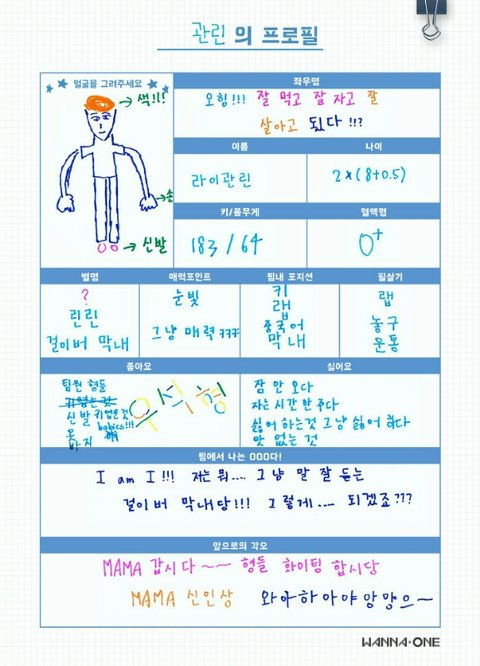 관린의 프로필
얼굴을 그려주세요
색!!!
손
신발
좌우명
오힘!!! 잘 먹고 잘 자고 잘
살아고 되다 !!!
이름
라이관린
나이
2×(8+0.5)
키/몸무게
183 / 64
혈액형
O+
별명
?
린린
걸이버 막내
매력포인트
눈빛
그냥 매력 ㅋㅋㅋ
팀내 포지션
키
랩
중국어
막내
필살기
랩
농구
운동
좋아요
팀원 형들
귀엽는 것
신발 귀엽은 것
babies!!!
옷
바지
우석형
싫어요
잠 안 오다
자는 시간 안 주다
싫어 하는 것 그냥 싫어 하다
맛 없는 것
팀에서 나는 OOO다!
I am I !!! 저는 뭐.... 그냥 말 잘 듣는
걸이버 막내당!!! 그렇게.... 되겠죠???
앞으로의 각오
MAMA 갑시다~~ 형들 화이팅 합시당
MAMA 신인상 와아하아야앙망으~
WANNA·ONE